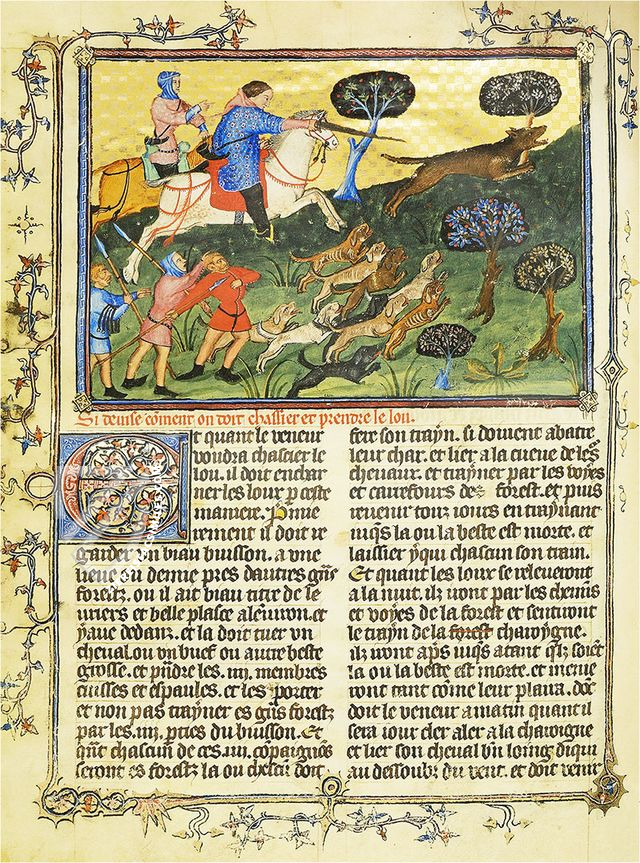 Si devise coment on doit chassier et prendre le lou.
Et quant le veneur
voudra chassier le
lou. il doit enchar
ner les loux p ceste
maniere. Premie
rement il doit re
garder un biau buisson. a une
lieue ou demie pres dautres gns
forestz. ou il ait biau titre de le
vriers et belle plasce alenviron. et
yaue dedanz. et la doit tuer un
cheval. ou un buef ou autre beste
grosse. et pndre les .iiii. membres
cuisses et espaules. et les porter
et non pas trayner es gns forestz
par les .iiii. pties du buisson. Et
qnt chascun de ces .iiii. copaignos
seront es forestz la ou chescun doit
fere son trayn. si doivent abatre
leur char. et lier a la cueue de les
chevaux. et trayner par les voyes
et carrefours des forest. et puis
revenir touz iours en traynant
iusqs la ou la beste est morte. et
laissier yqui chascun son train.
Et quant les loux se releveront
a la nuit. ilz vont par les chemis
et voyes de la forest et sentiront
le trayn de la forest charoygne.
ilz vont aps iusqs atant qlz soiet
la ou la beste est morte. et menie
ront tant come leur plaira. doc
doit le veneur a matin quant il
sera iour cler aler a la charoigne
et lier son cheval bn loing diqui
au dessoubz du vent. et doit venir